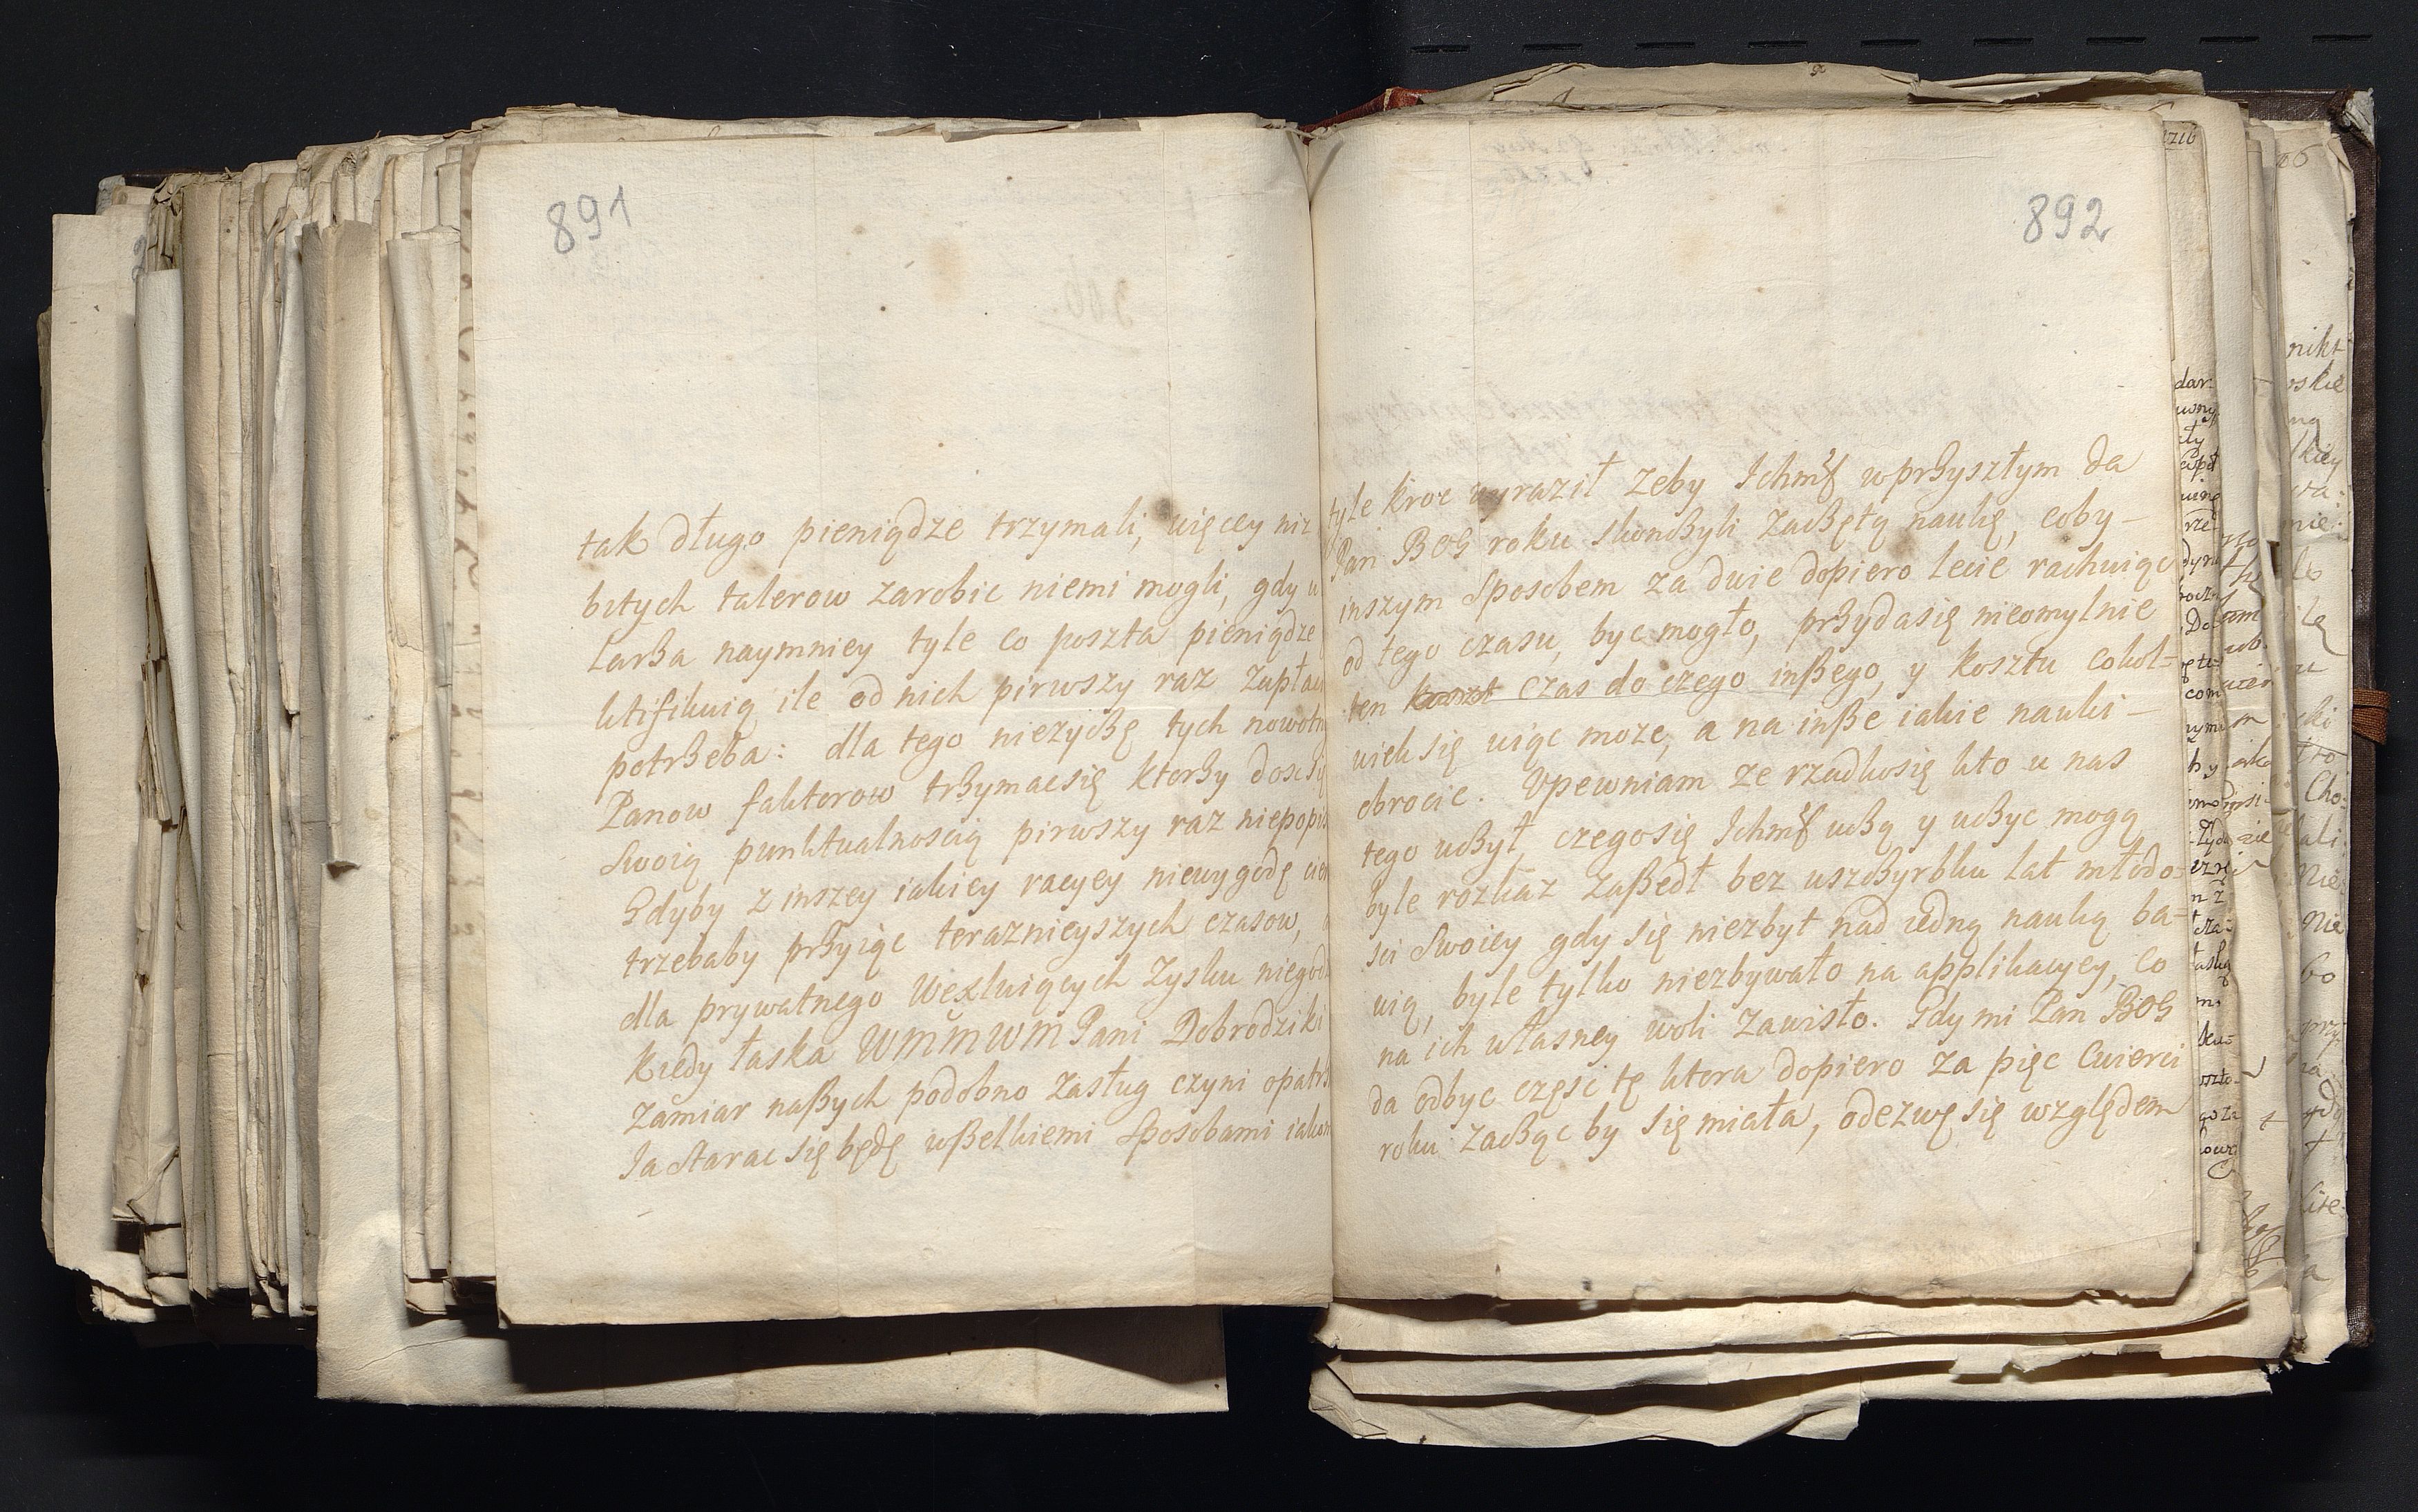 891
tak długo pieniądze trzymali, więcey niz
bitych talerow zarobic niemi mogli, gdy
larßa naymniey tyle co poszta pieniądze
ktifikuią ile od nich pirwszy raz zapłac
potrßeba: dla tego nieżyczę tych nowotn
Panow faktorow trßymac się ktorßy dosc
Swoią punktualnoscią pirwszy raz niepopis
Gdyby z inszey iakiey racyey niewygodę cier
trzebaby prßyiąc teraznieyszych czasow,
dla prywatnego Wexluiących Zysku niegod
Kiedy łaska WMMWM Pani Dobrodziki
zamiar naßych podobno zasług czyni opatrß
Ja starac się będę wßelkiemi Sposobami iako
892
tyle kroc wyraził zeby Ichmsc w prßyszłym da
Pan BOG roku skonßyli zaßętą naukę, coby-
inszym Sposobem za dwie dopiero lecie rachuiąc
od tego czasu, byc mogło, prßydasię nieomylnie
ten koszt czas do czego inßego, y kosztu cokol=
wiek się uiąc moze, a na inße iakie nauki-
obrocic. Upewniam ze rzadko się kto u nas
tego ußył czego się Ichmsc ußą y ußyc mogą
byle rozkaz zaßedł bez uszßyrbku lat młodo=
sci Swoiey gdy się niezbyt nad iedną nauką ba=
wią, byle tylko niezbywało na applikacyey, co
na ich własney woli zawisło. Gdy mi Pan BOG
da odbyc częsc tę ktora dopiero za pięc cwierci
roku zaßąc by się miała, odezwę się względem